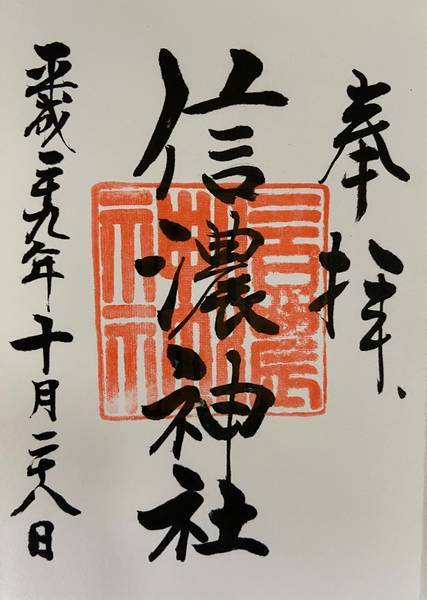 奉拝
信濃神社
平成二十九年十月二十八日